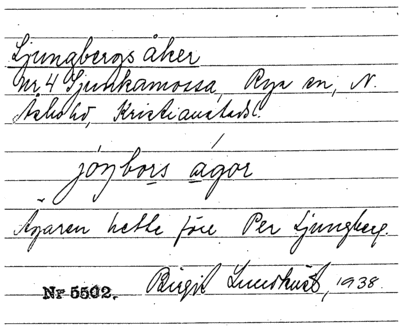 Ljungbergs åker
Nr 4 Ljunkamossa, Rya sn, N.
Åsbo hd, Kristianstads l.
jóŋbors ágor
Ägaren hette förr Per Ljungberg.
Nr 5502. Birgit Lundkvist, 1938.